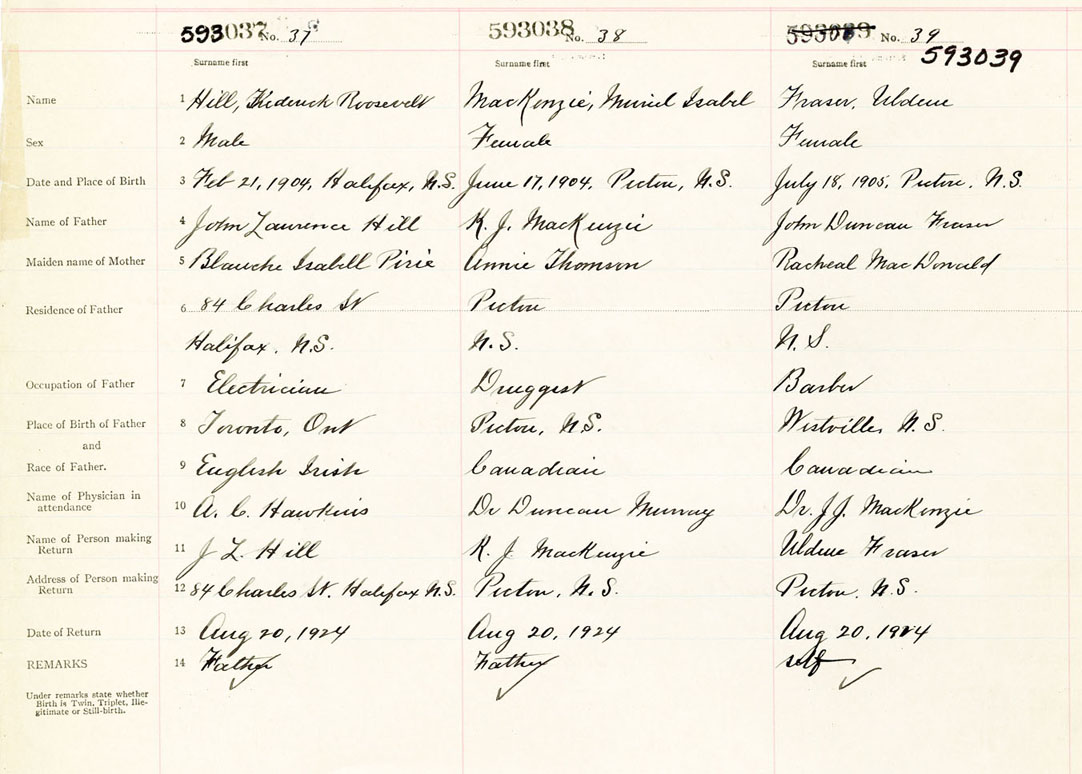 593037 No. 37 593038 No. 38 593039 No. 39
593039
Surname first Surname first Surname first
Name 1 Hill, Frederick Roosevelt MacKenzie, Muriel Isabel Fraser, Uldene
Sex 2 Male Female Female
Date and Place of Birth 3 Feb 21, 1904, Halifax, N.S. June 17, 1904, Pictou, N.S. July 18, 1905, Pictou, N.S.
Name of Father 4 John Lawrence Hill K. J. MacKenzie John Duncan Fraser
Maiden name of Mother 5 Blanche Isabell Pirie Annie Thomson Racheal MacDonald
Residence of Father 6 84 Charles St Pictou Pictou
Halifax, N.S. N.S. N.S.
Occupation of Father 7 Electrician Druggist Barber
Place of Birth of Father 8 Toronto, Ont Pictou, N.S. Westville, N.S.
and
Race of Father. 9 English Irish Canadian Canadian
Name of Physician in
attendance 10 A. C. Hawkins Dr Duncan Murray Dr. J.J. MacKenzie
Name of Person making
Return 11 J L. Hill K. J. MacKenzie Uldene Fraser
Address of Person making
Return 12 84 Charles St. Halifax N.S. Pictou, N.S. Pictou, N.S.
Date of Return 13 Aug 20, 1924 Aug 20, 1924 Aug 20, 1924
REMARKS 14 Father Father self
Under remarks state whether
Birth is Twin, Triplet, Ille-
gitimate or Still-birth.